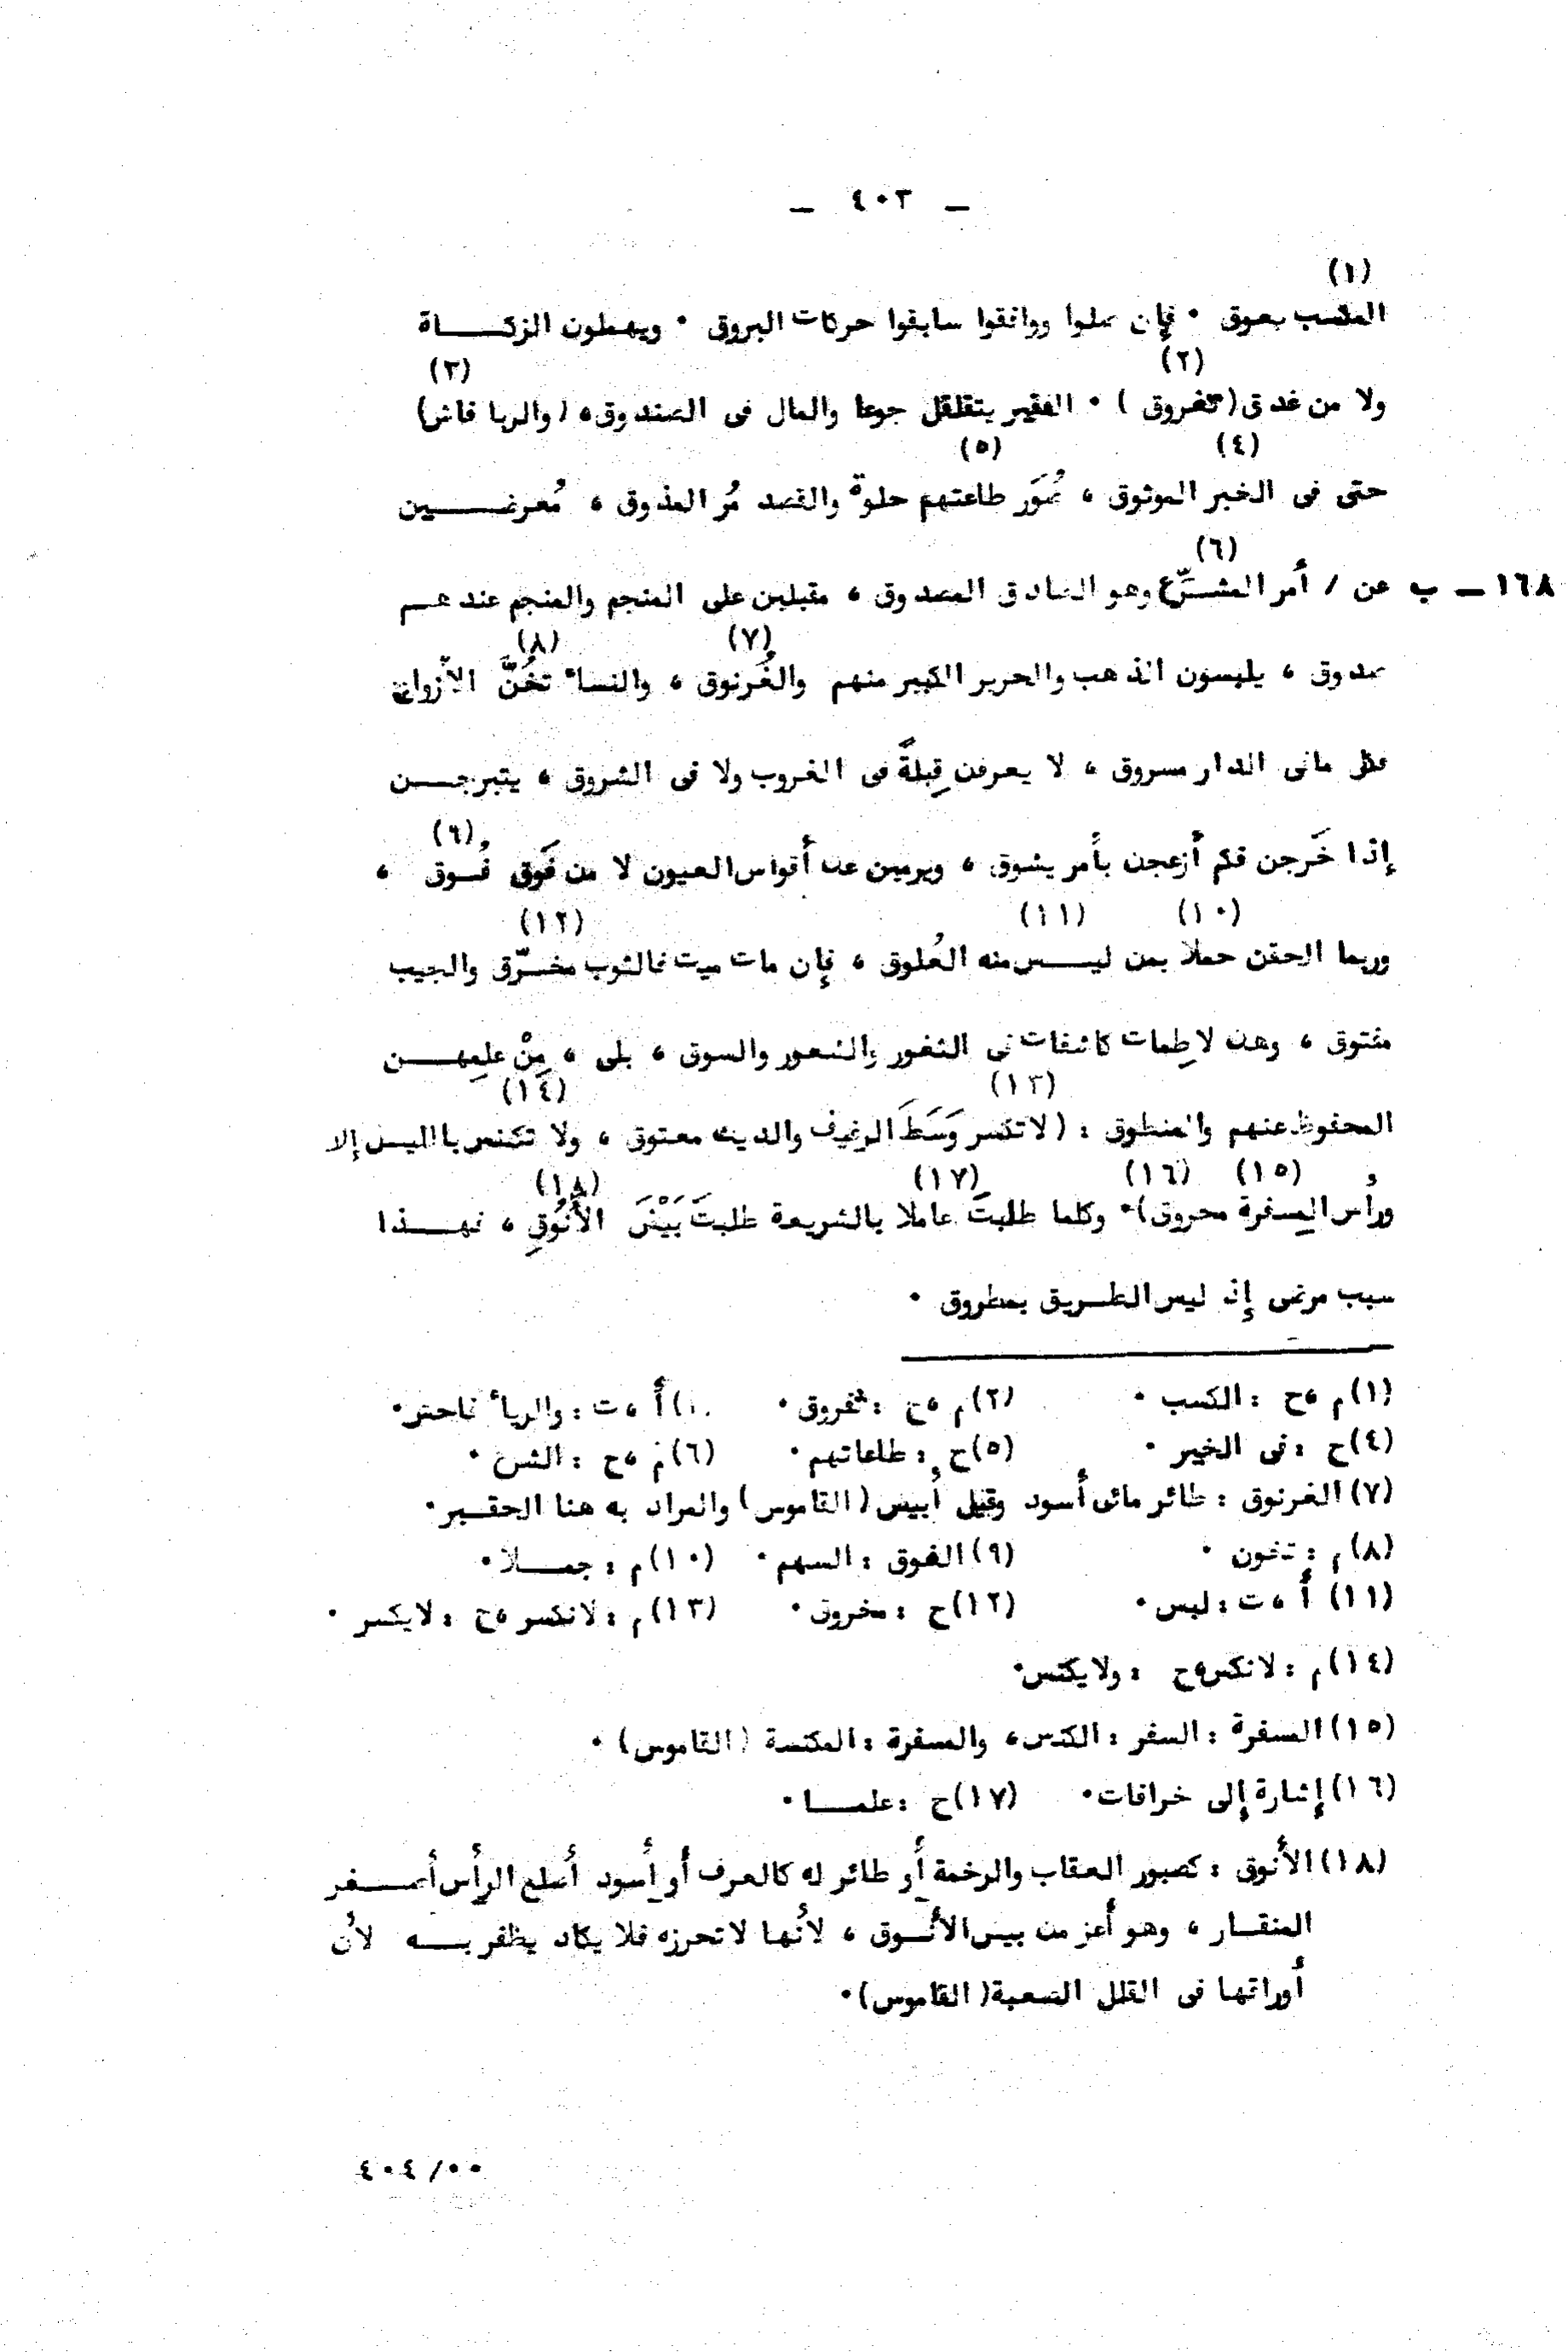 ـ ٤٠٣ ـ
(١)
المكسب بعوق ٠ فإن صلوا ووافقوا سابقوا حركات البروق ٠ ويهملون الزكـــــاة
(٢) (٣)
ولا من غدق (ثفروق ) ٠ الفقير يتقلقل جوعا والمال فى الصندوق، (والربا فاش)
(٤) (٥)
حتى فى الخبر الموثوق ، صُوَر طاعتهم حلوة والقصد مُر المذوق ، مُعرضـــــين
(٦)
١٦٨ ـ ب عن / أمر المشــرّع وهو الصادق المصدوق ، مقبلين على المنجم والمنجم عندهــم
(٧) (٨)
صدوق ، يلبسون الذهب والحرير الكبير منهم والغُرنوق ، والنساء تخُنَّ الأزواج
فكل مافى الدار مسروق ، لا يعرفن قِبلةً فى الغروب ولا فى الشروق ، يتبرجـــن
(٩)
إذا خَرجن فكم أزعجن بأمر يشوق ، ويرمين عن أقواس العيون لا من فَوق فُــوق ،
(١٠) (١١) (١٢)
وربما ألحقن حملا بمن ليــــس منه العُلوق ، فإن مات ميت فالثوب مخــرّق والجيب
مفتوق ، وهن لاطِمات كاشفات فى الثغور والشعور والسوق ، بلى ، مِنْ علمِهـــن
(١٣) (١٤)
المحفوظ عنهم والمنطوق : (لاتكسر وَسَطَ الرغيف والديك معتوق ، ولا تكنس بالليــل إلا
(١٥) (١٦) (١٧) (١٨)
ورأس المِسفرة محروق)٠ وكلما طلبتَ عاملا بالشريعة طلبتَ بَيْضَ الأَنُوقِ ، فهـــذا
سبب مرضى إذ ليس الطــريق بمطروق ٠
(١) م ،ح : الكسب ٠ (٢) م ،ح : ثفروق ٠ ) أ ، ت : والرياء فاحش٠
(٤) ح : فى الخير ٠ (٥) ح : طاعاتهم ٠ (٦) م ،ح : الشرع ٠
(٧) الغرنوق : طائر مائى أسود وقيل أبيض (القاموس) والمراد به هنا الحقــير٠
(٨) م : تخون ٠ (٩) الفوق : السهم ٠ (١٠) م : جمــــلا ٠
(١١) أ ، ت : لبس ٠ (١٢) ح : مخروق ٠ (١٣) م : لانكسر ،ح : لايكسر ٠
(١٤) م : لانكس ،ح : ولايكنس٠
(١٥) المسفرة : السفر : الكنس، والمسفرة : المكنسة (القاموس) ٠
(١٦) إشارة إلى خرافات٠ (١٧) ح : علمـــا ٠
(١٨) الأنوق : كصبور العقاب والرخمة أو طائر له كالعرف أو أسود أصلع الرأس أصــــفر
المنقــار ، وهو أعز من بيض الأنــوق ، لأنها لاتحرزه فلا يكاد يظفر بـــه لأن
أوراقها فى القلل الصعبة( القاموس)٠
٤٠٤/٠٠